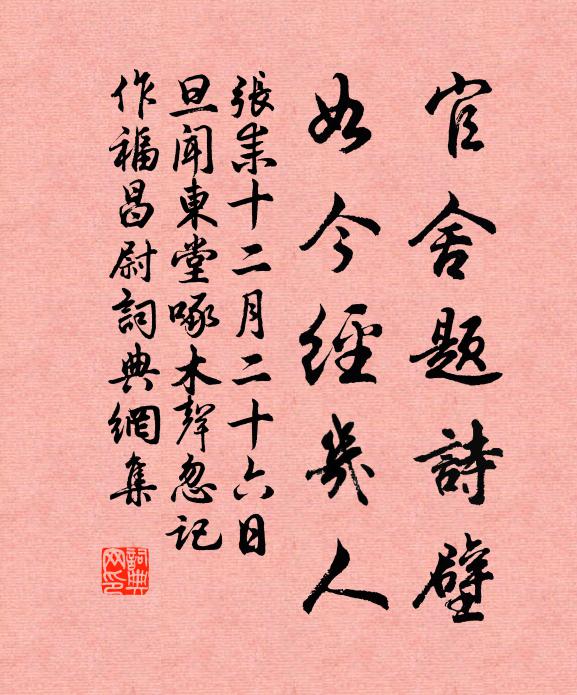 官舍題詩壁
如今經幾人
張耒十二月二十六日
旦聞東堂啄木聲忽記
作福昌尉詞典網集
詞典
网印